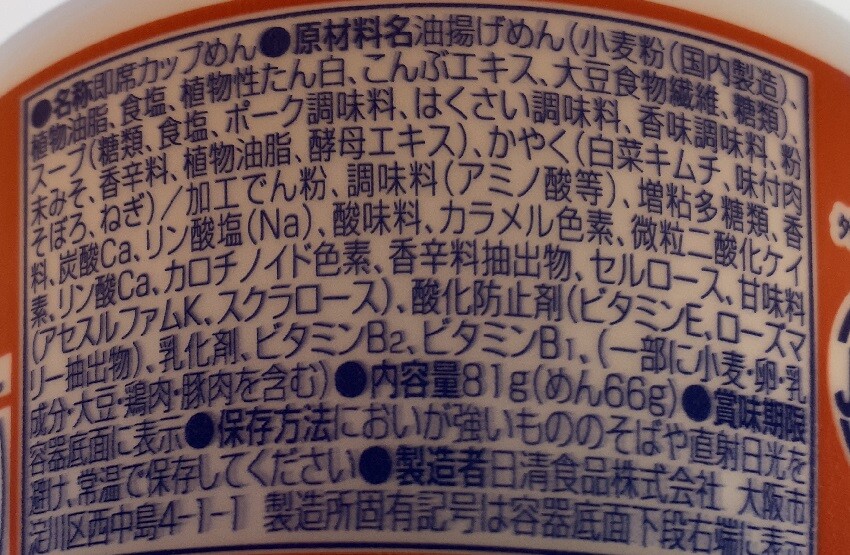 ●名称即席カップめん●原材料名油揚げめん(小麦粉(国内製造)、
植物油脂、食塩、植物性たん白、こんぶエキス、大豆食物繊維、糖類)、
スープ(糖類、食塩、ポーク調味料、はくさい調味料、香味調味料、粉
末みそ、香辛料、植物油脂、酵母エキス)、かやく(白菜キムチ、味付肉
そぼろ、ねぎ)/加工でん粉、調味料(アミノ酸等)、増粘多糖類、香
料、炭酸Ca、リン酸塩(Na)、酸味料、カラメル色素、微粒二酸化ケイ
素、リン酸Ca、カロチノイド色素、香辛料抽出物、セルロース、甘味料
(アセスルファムK、スクラロース)、酸化防止剤(ビタミンE、ローズマ
リー抽出物)、乳化剤、ビタミンB2、ビタミンB1、(一部に小麦・卵・乳
成分・大豆・鶏肉・豚肉を含む)●内容量81g(めん66g)●賞味期限
容器底面に表示●保存方法においが強いもののそばや直射日光を
避け、常温で保存してください●製造者日清食品株式会社 大阪市
淀川区西中島4-1-1 製造所固有記号は容器底面下段右端に表示